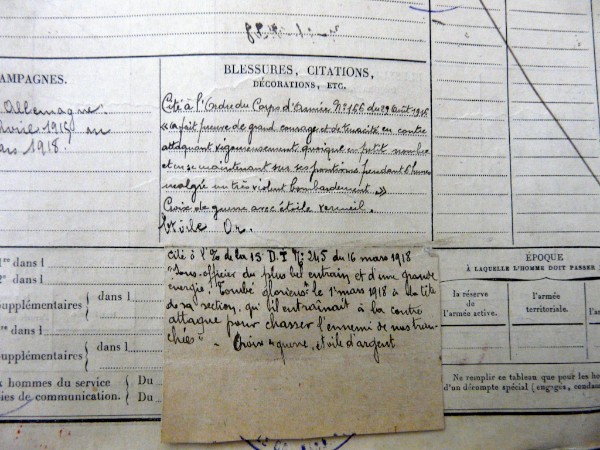 CAMPAGNES.
Allemagne
Avril 1915 au
mars 1918.
BLESSURES, CITATIONS,
DÉCORATIONS, ETC.
Cité à l'Ordre du Corps d'Armée N° 166 du 29 Août 1916
« a fait preuve de grand courage et de ténacité en contre
attaquant vigoureusement quoique en petit nombre
et en se maintenant sur ses positions pendant
malgré un très violent bombardement »
Croix de guerre avec étoile vermeil.
Étoile Or.
cité à l'O/ de la 15 D.I N: 245 du 16 mars 1918
"Sous-officier du plus bel entrain et d'une grande
energie; Tombé glorieust le 1 mars 1918 à la tête
de sa section, qu'il entraînait à la contre
attaque pour chasser l'ennemi de nos tran-
chées" - Croix guerre, étoile d'argent
1re dans l
2e dans l
supplémentaires
dans l
dans l
supplémentaires
dans l
x hommes du service
Du
ies de communication.
Du
ÉPOQUE
À LAQUELLE L'HOMME DOIT PASSER
la réserve
de
l'armée active.
l'armée
territoriale.
Ne remplir ce tableau que pour les ho
d'un décompte spécial (engagés, condam